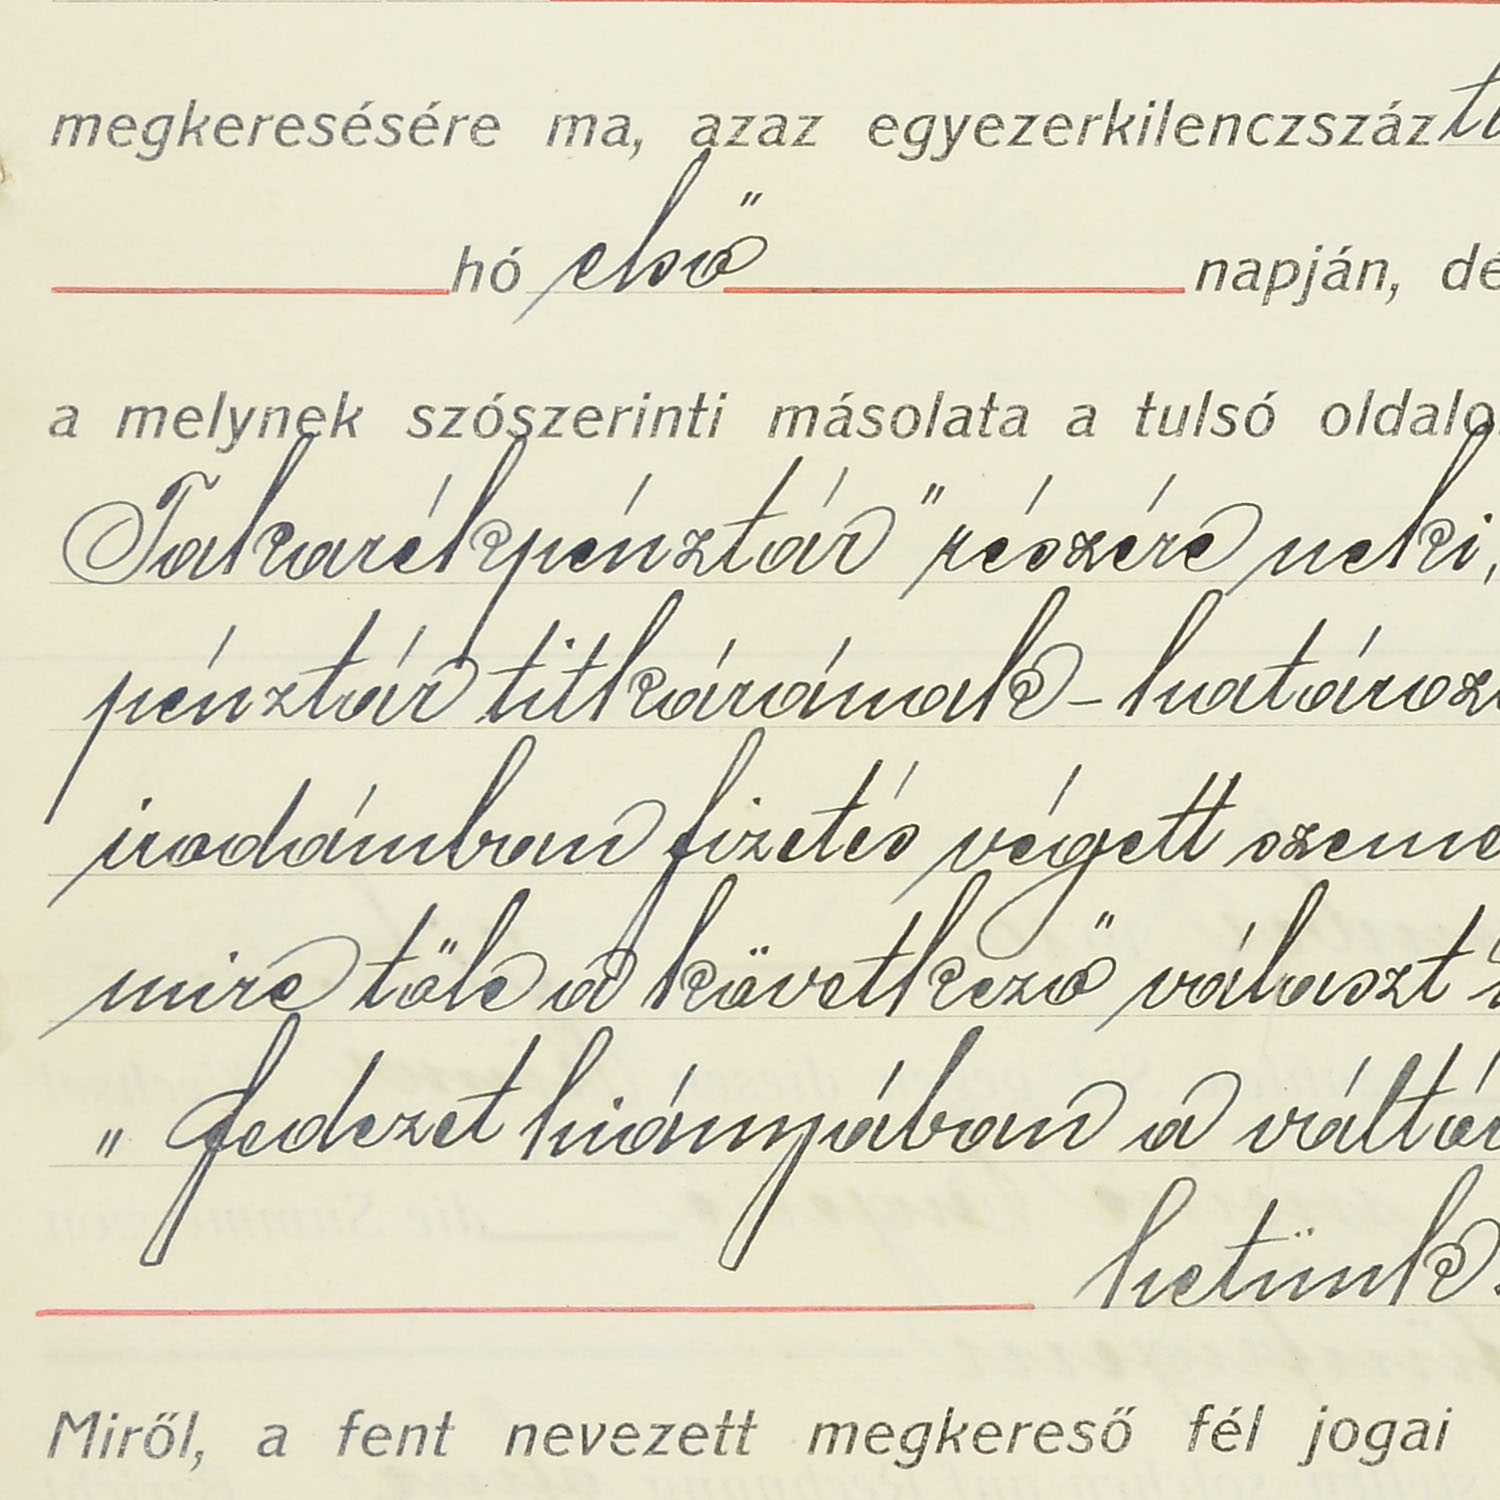 megkeresésére ma, azaz egyezerkilenczszáz
hó első napján, dé
a melynek szószerinti másolata a tulsó oldalo
Takarékpénztár" részére neki,
pénztár titkárának – határoz
irodámban fizetés végett szeme
mire tőle a következő választ
" fedezet hiányában a váltó
hetünk.
Miről, a fent nevezett megkereső fél jogai